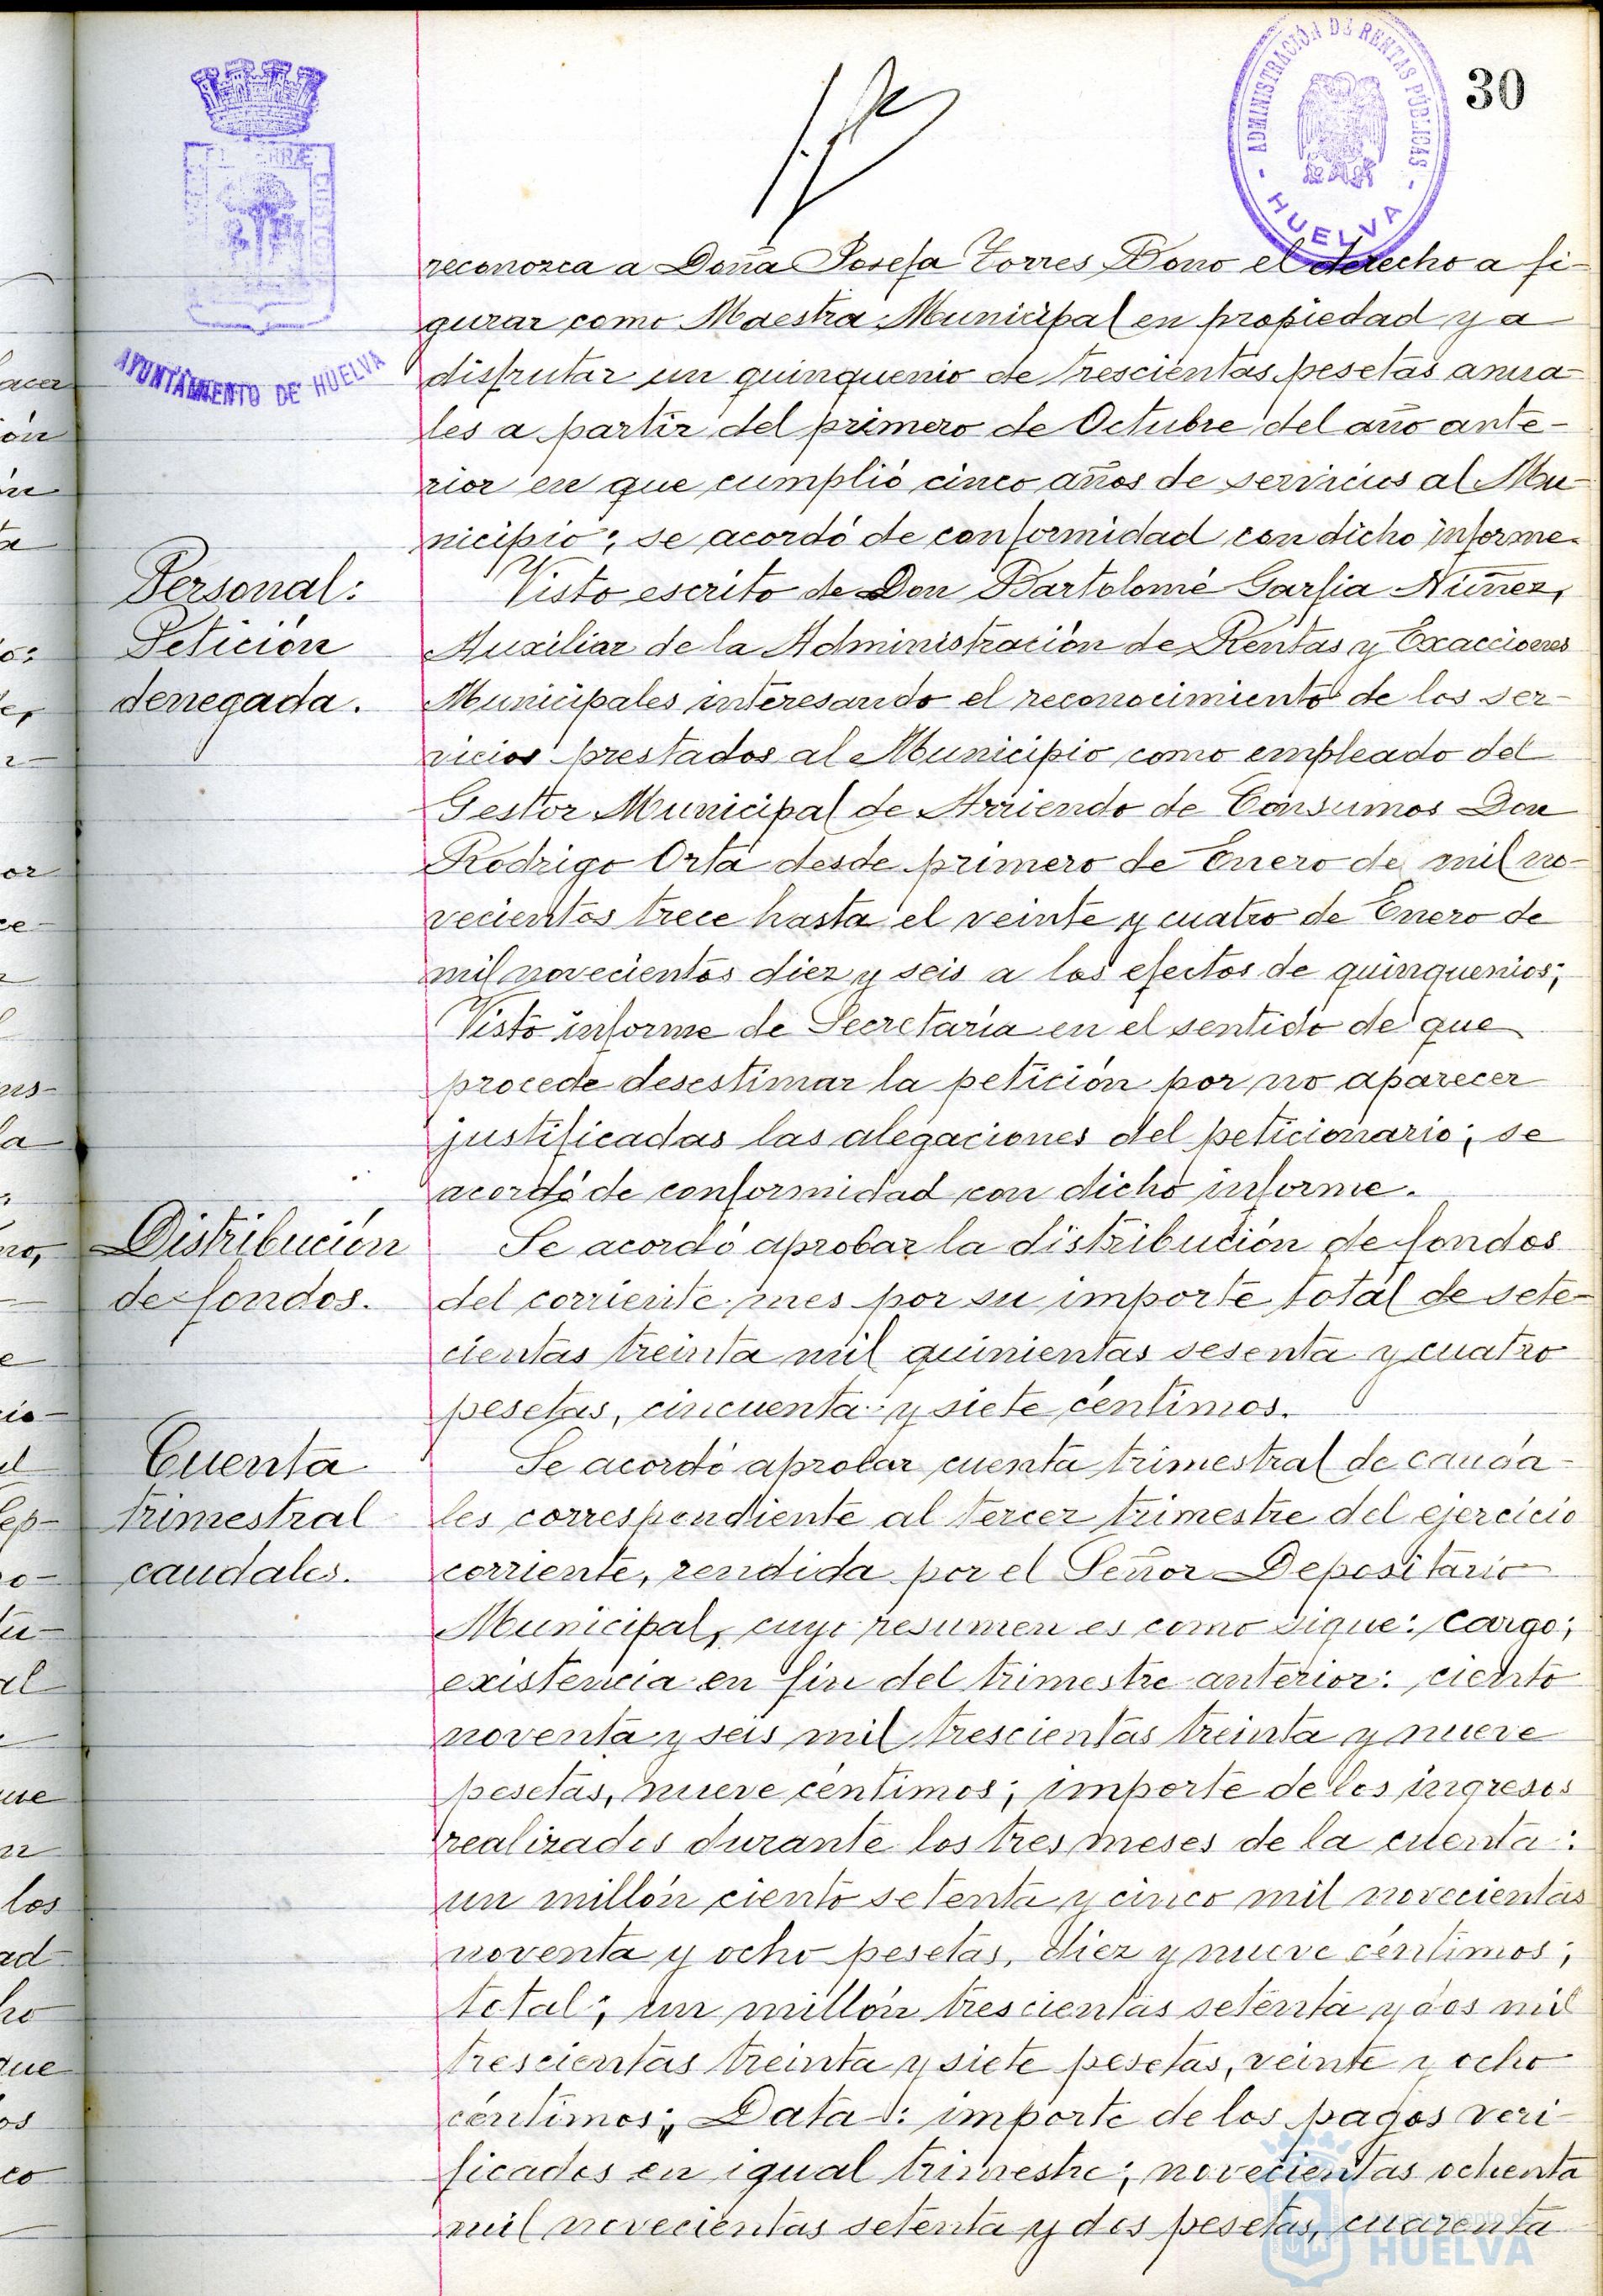 30
ADMINISTRACIÓN DE RENTAS PÚBLICAS
- HUELVA -
AYUNTAMIENTO DE HUELVA
reconozca a Doña Josefa Torres Bono el derecho a fi-
gurar como Maestra Municipal en propiedad y a
disfrutar un quinquenio de trescientas pesetas anua-
les a partir del primero de Octubre del año ante-
rior en que cumplió cinco años de servicios al Mu-
nicipio; se acordó de conformidad con dicho informe.
Personal:
Petición
denegada.
Visto escrito de Don Bartolomé Garfia Núñez,
Auxiliar de la Administración de Rentas y Exacciones
Municipales interesando el reconocimiento de los ser-
vicios prestados al Municipio como empleado del
Gestor Municipal de Arriendo de Consumos Don
Rodrigo Orta desde primero de Enero de mil no-
vecientos trece hasta el veinte y cuatro de Enero de
mil novecientos diez y seis a los efectos de quinquenios;
Visto informe de Secretaría en el sentido de que
procede desestimar la petición por no aparecer
justificadas las alegaciones del peticionario; se
acordó de conformidad con dicho informe.
Distribución
de fondos.
Se acordó aprobar la distribución de fondos
del corriente mes por su importe total de sete-
cientas treinta mil quinientas sesenta y cuatro
pesetas, cincuenta y siete céntimos.
Cuenta
trimestral
caudales.
Se acordó aprobar cuenta trimestral de cauda-
les correspondiente al tercer trimestre del ejercicio
corriente, rendida por el Señor Depositario
Municipal, cuyo resumen es como sigue: Cargo;
existencia en fin del trimestre anterior: ciento
noventa y seis mil trescientas treinta y nueve
pesetas, nueve céntimos; importe de los ingresos
realizados durante los tres meses de la cuenta:
un millón ciento setenta y cinco mil novecientas
noventa y ocho pesetas, diez y nueve céntimos;
total; un millón trescientas setenta y dos mil
trescientas treinta y siete pesetas, veinte y ocho
céntimos; Data: importe de los pagos veri-
ficados en igual trimestre; novecientas ochenta
mil novecientas setenta y dos pesetas, cuarenta
Ayuntamiento de
HUELVA